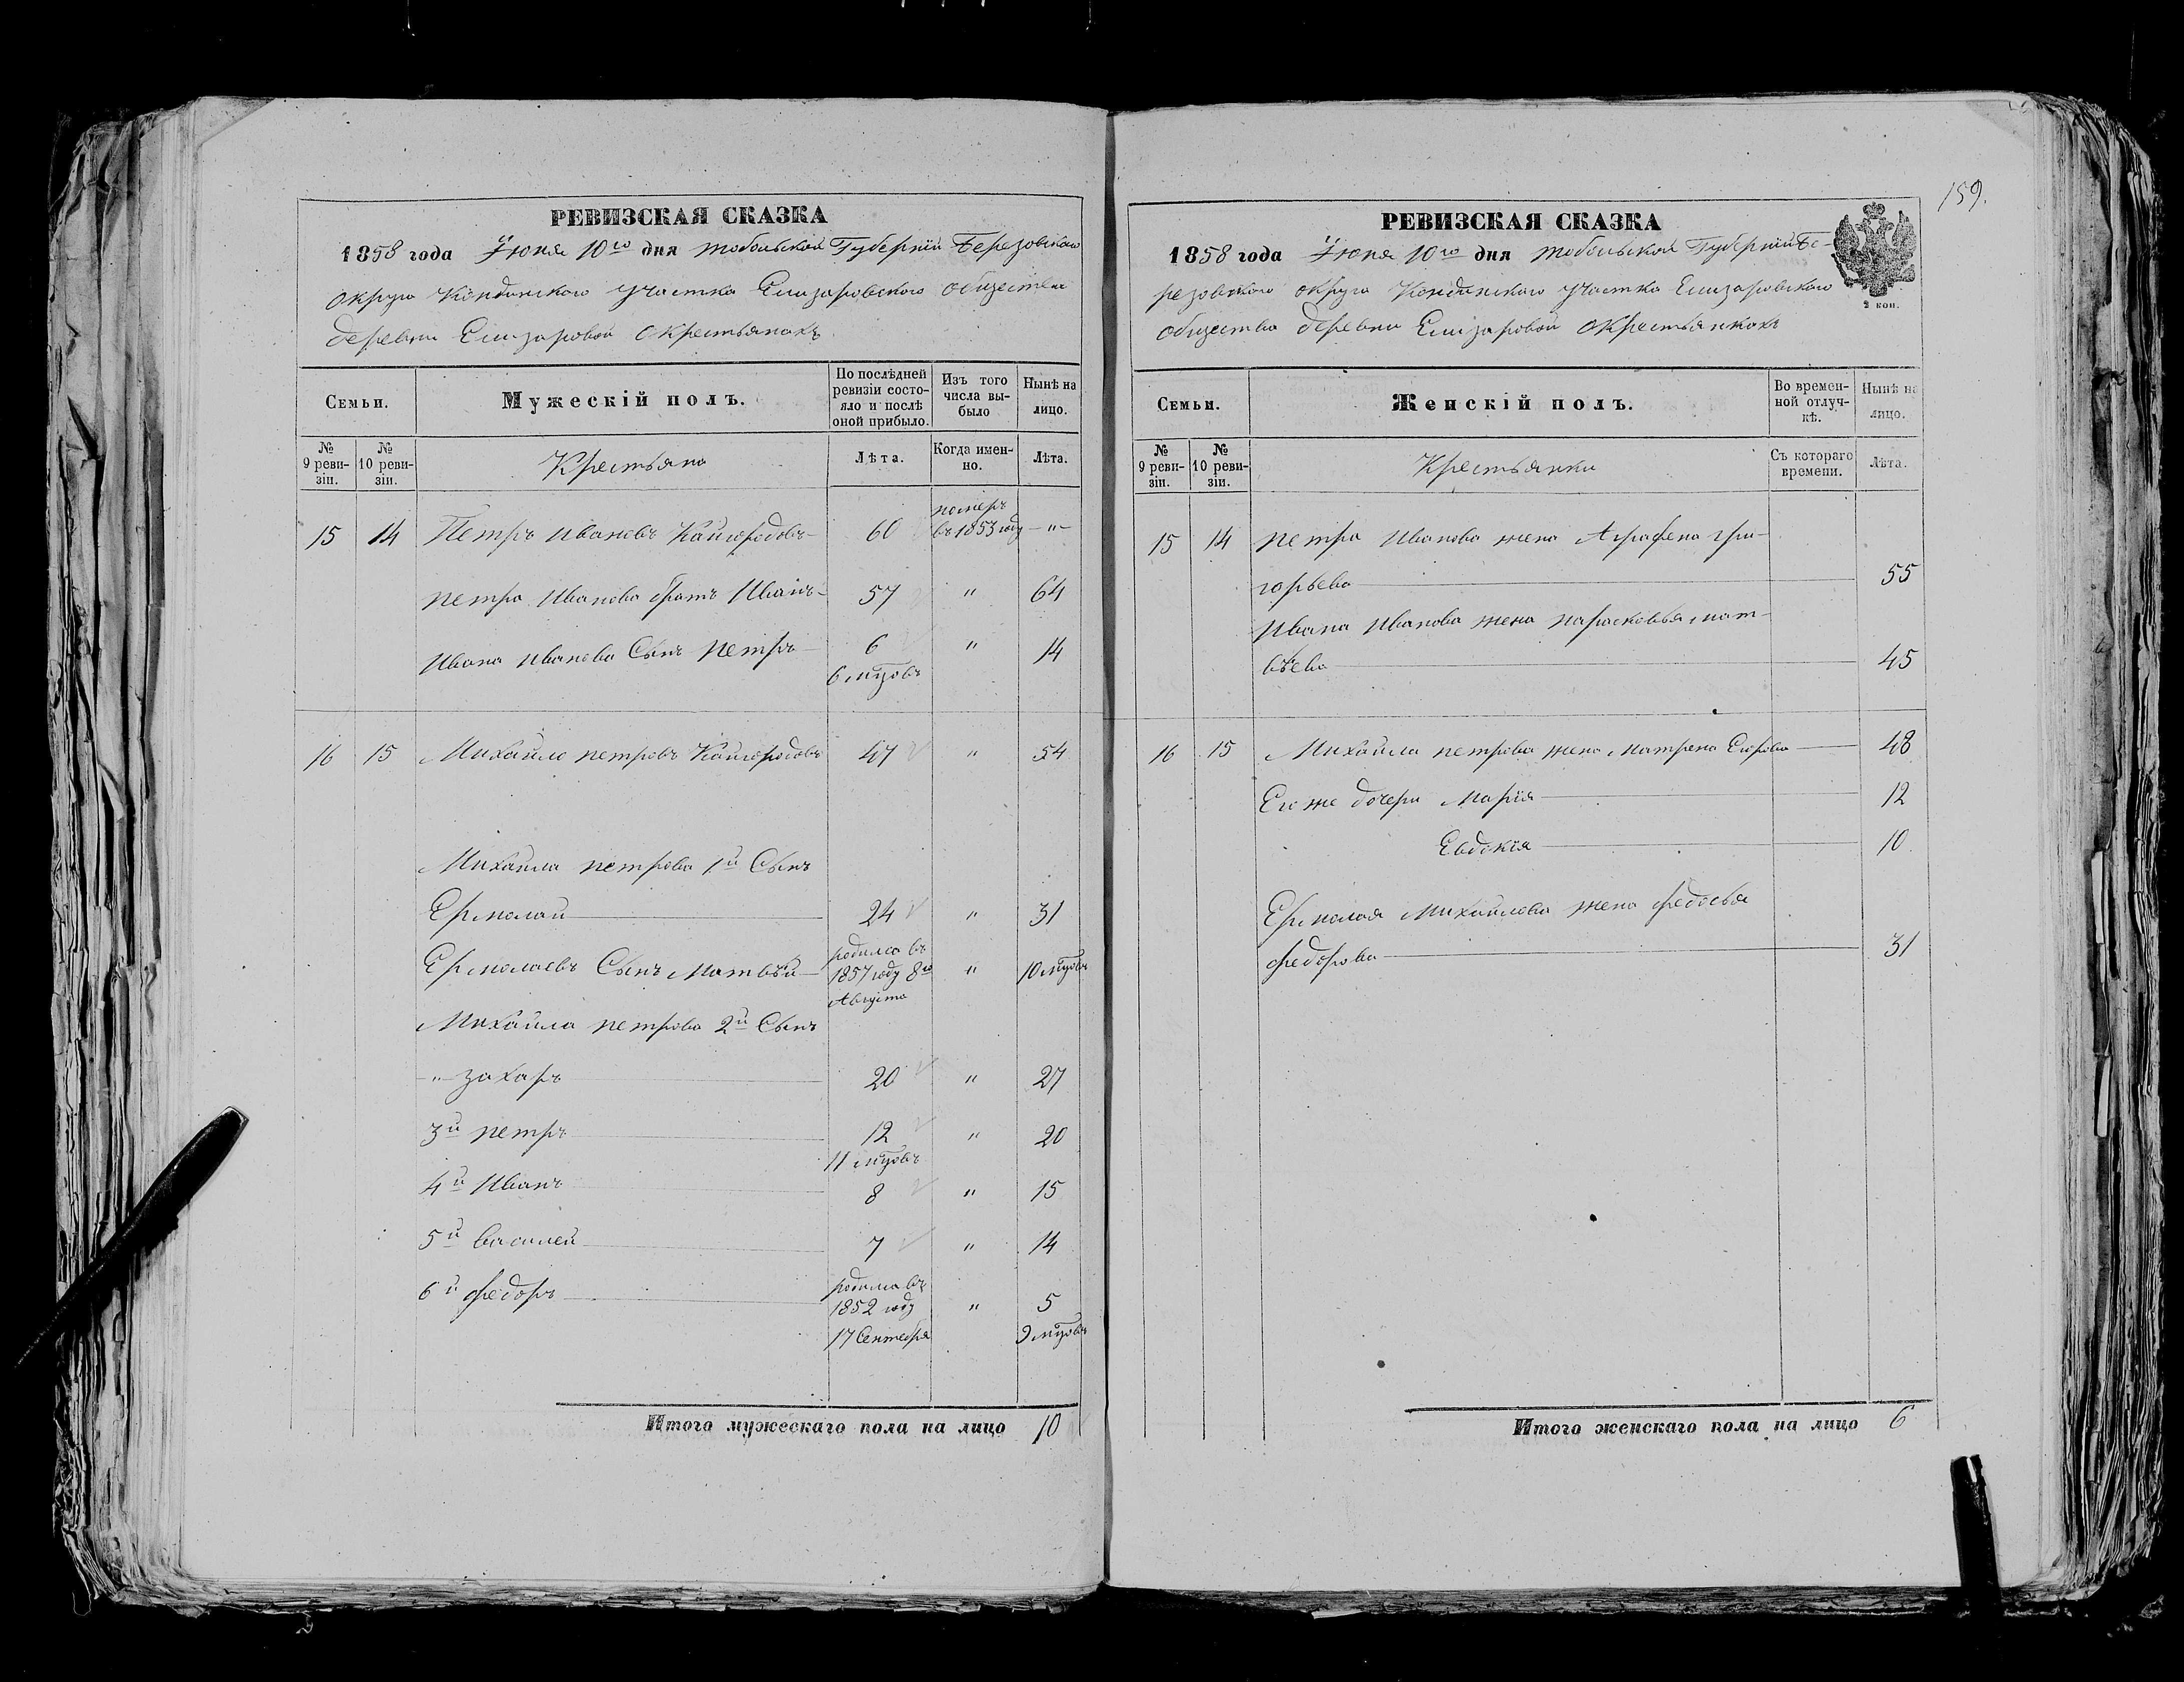 РЕВИЗСКАЯ СКАЗКА
1858 года Іюня 10го дня Тобольской Губерніи Березовскаго
округа Кондинскаго участка Елизаровскаго общества
деревни Елизаровой о крестьянахъ
Семьи.
Мужескій полъ.
По послѣдней ревизіи состо-
яло и послѣ оной прибыло.
Изъ того числа вы-
было
Нынѣ на лицо.
№ 9 реви-
зіи.
№ 10 реви-
зіи.
Крестьяна
Лѣта.
Когда имен-
но.
Лѣта.
15 14 Петръ Ивановъ Кайгородовъ 60 померъ въ 1853 году - " -
Петра Иванова братъ Иванъ 57 " 64
Ивана Иванова Сынъ Петръ 6 " 14
6 мцовъ
16 15 Михайло Петровъ Кайгородовъ 47 " 54
Михайла Петрова 1й Сынъ
Ермолай 24 " 31
Ермолаевъ Сынъ Матвѣй родился въ 1857 году 8го Августа " 10 мцовъ
Михайла Петрова 2й Сынъ
" Захаръ 20 " 27
3й Петръ 12 " 20
11 мцовъ
4й Иванъ 8 " 15
5й Василей 7 " 14
6й Федоръ родился въ 1852 году 17 Сентебря " 5
9 мцовъ
Итого мужескаго пола на лицо 10
159.
РЕВИЗСКАЯ СКАЗКА
1858 года Іюня 10го дня Тобольской Губерніи Бе-
резовскаго округа Кондинскаго участка Елизаровскаго
общества деревни Елизаровой о крестьянкахъ
2 коп.
Семьи.
Женскій полъ.
Во времен-
ной отлуч-
кѣ.
Нынѣ на лицо.
№ 9 реви-
зіи.
№ 10 реви-
зіи.
Крестьянки
Съ котораго времени.
Лѣта.
15 14 Петра Иванова жена Аграфена Гри-
горьева 55
Ивана Иванова жена Парасковья Мат-
вѣева 45
16 15 Михайла Петрова жена Матрена Егорова 48
Его же дочери Марія 12
Евдокія 10
Ермолая Михайлова жена Федосья
Федорова 31
Итого женскаго пола на лицо 6